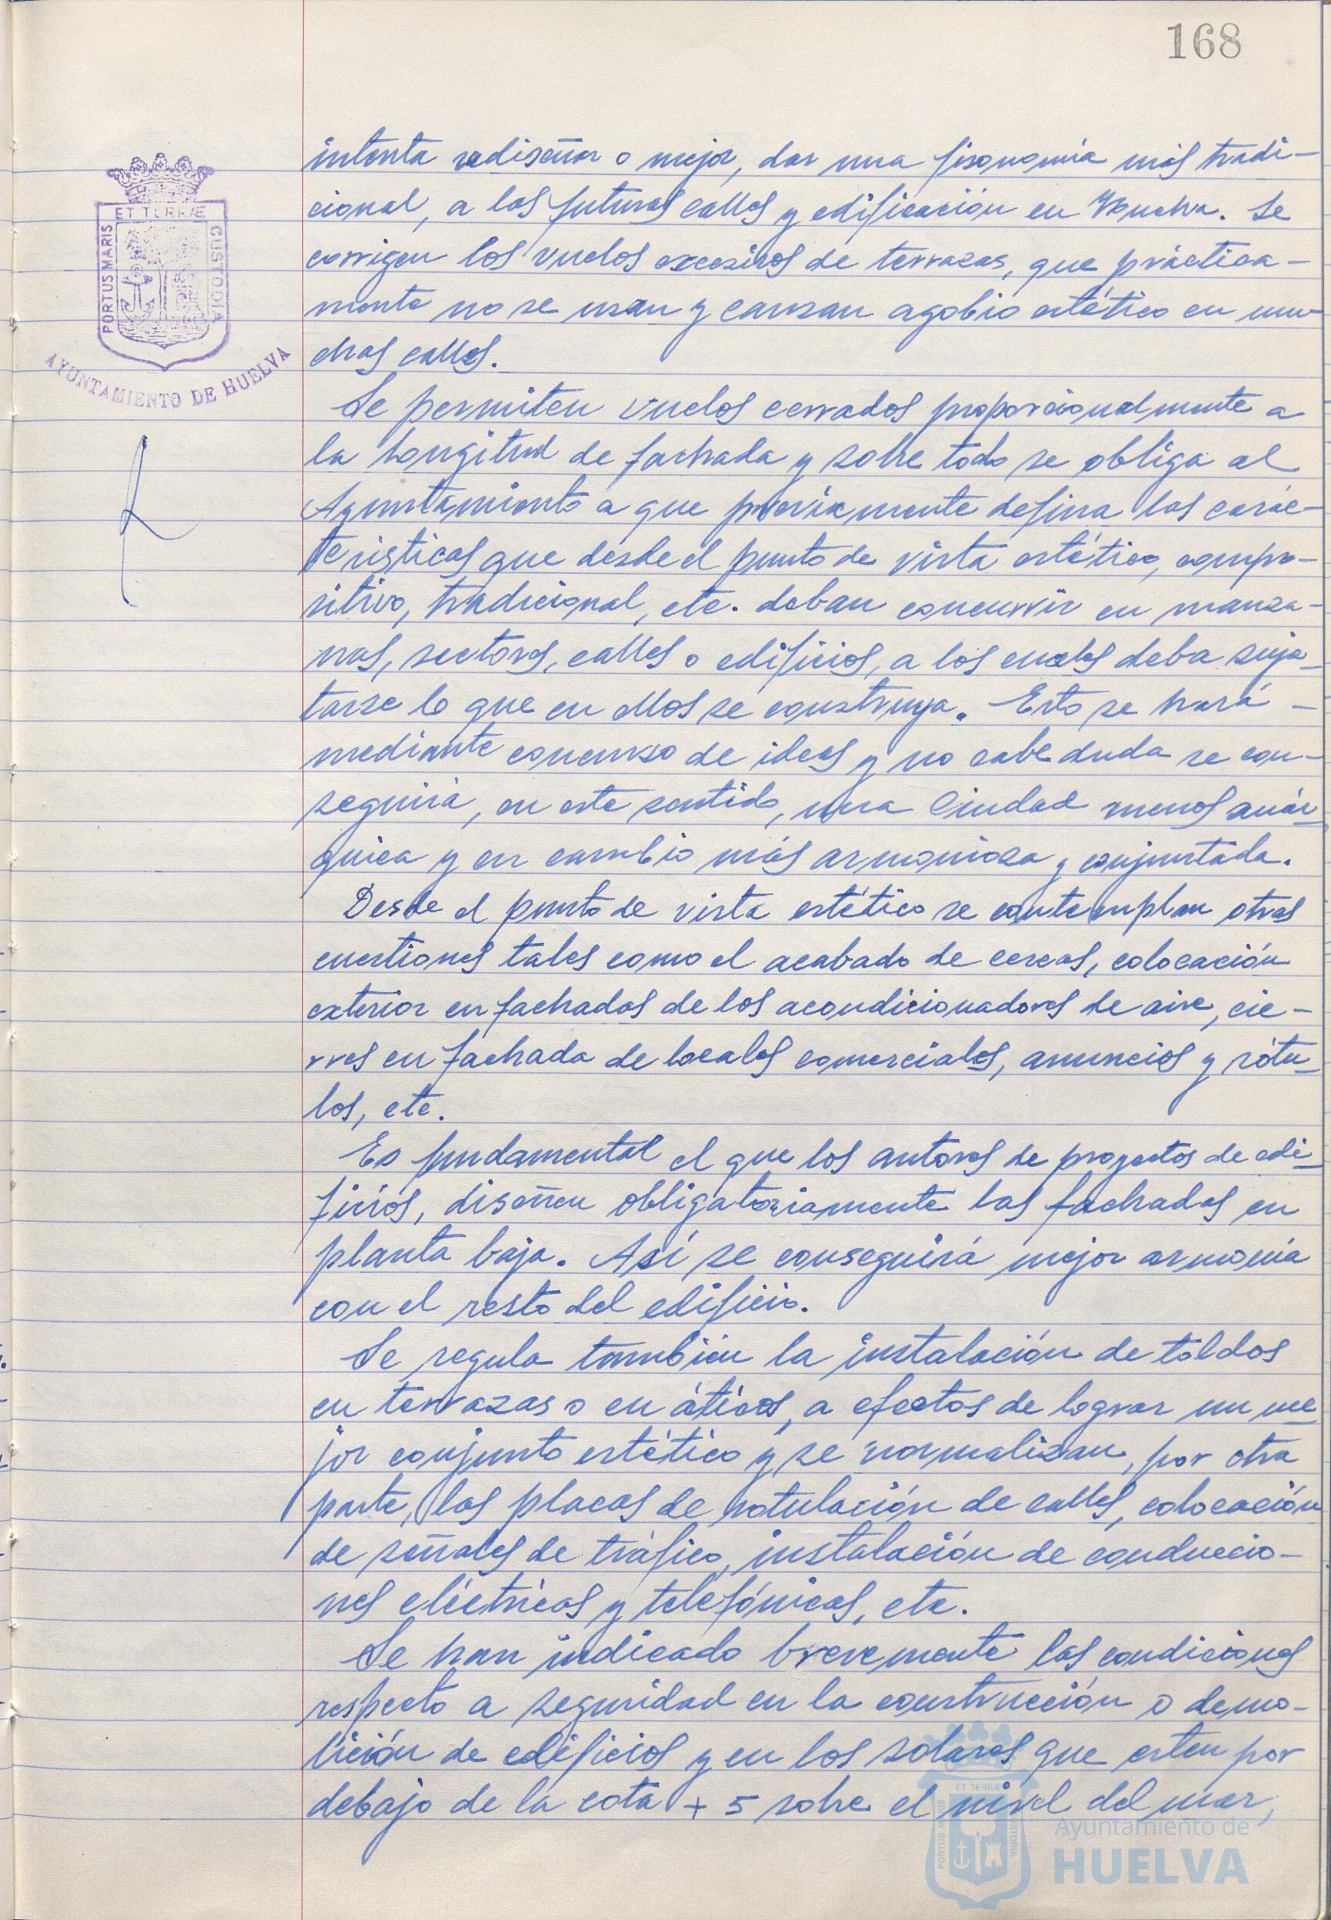 168
ET TERRÆ
PORTUS MARIS
CUSTODIA
AYUNTAMIENTO DE HUELVA
intenta rediseñar o mejor, dar una fisonomía más tradi-
cional, a las futuras calles y edificación en Huelva. Se
corrigen los vuelos excesivos de terrazas, que práctica-
mente no se usan y causan agobio estético en mu-
chas calles.
Se permiten vuelos cerrados proporcionalmente a
la longitud de fachada y sobre todo se obliga al
Ayuntamiento a que previamente defina las carac-
terísticas que desde el punto de vista estético, compo-
sitivo, tradicional, etc. deban concurrir en manza-
nas, sectores, calles o edificios, a los cuales deba suje-
tarse lo que en ellos se construya. Esto se hará -
mediante concurso de ideas y no cabe duda se con-
seguirá, en este sentido, una Ciudad menos anár-
quica y en cambio más armoniosa y conjuntada.
Desde el punto de vista estético se contemplan otras
cuestiones tales como el acabado de cercas, colocación
exterior en fachadas de los acondicionadores de aire, cie-
rres en fachada de locales comerciales, anuncios y rótu-
los, etc.
Es fundamental el que los autores de proyectos de edi-
ficios, diseñen obligatoriamente las fachadas en
planta baja. Así se conseguirá mejor armonía
con el resto del edificio.
Se regula también la instalación de toldos
en terrazas o en áticos, a efectos de lograr un me-
jor conjunto estético y se normalizan, por otra
parte, las placas de rotulación de calles, colocación
de señales de tráfico, instalación de conduccio-
nes eléctricas y telefónicas, etc.
Se han indicado brevemente las condiciones
respecto a seguridad en la construcción o demo-
lición de edificios y en los solares que esten por
debajo de la cota + 5 sobre el nivel del mar,
Ayuntamiento de
HUELVA